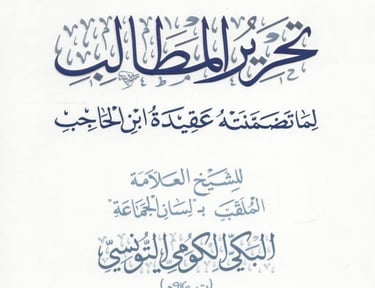 تحرير المطالب
لِمَا تَضَمَّنَتْهُ عَقِيدَةُ ابْنِ الْحَاجِبِ
للشيخ العلامة
الملقب بـ "لسان الجماعة"
البكي الكومي التونسي